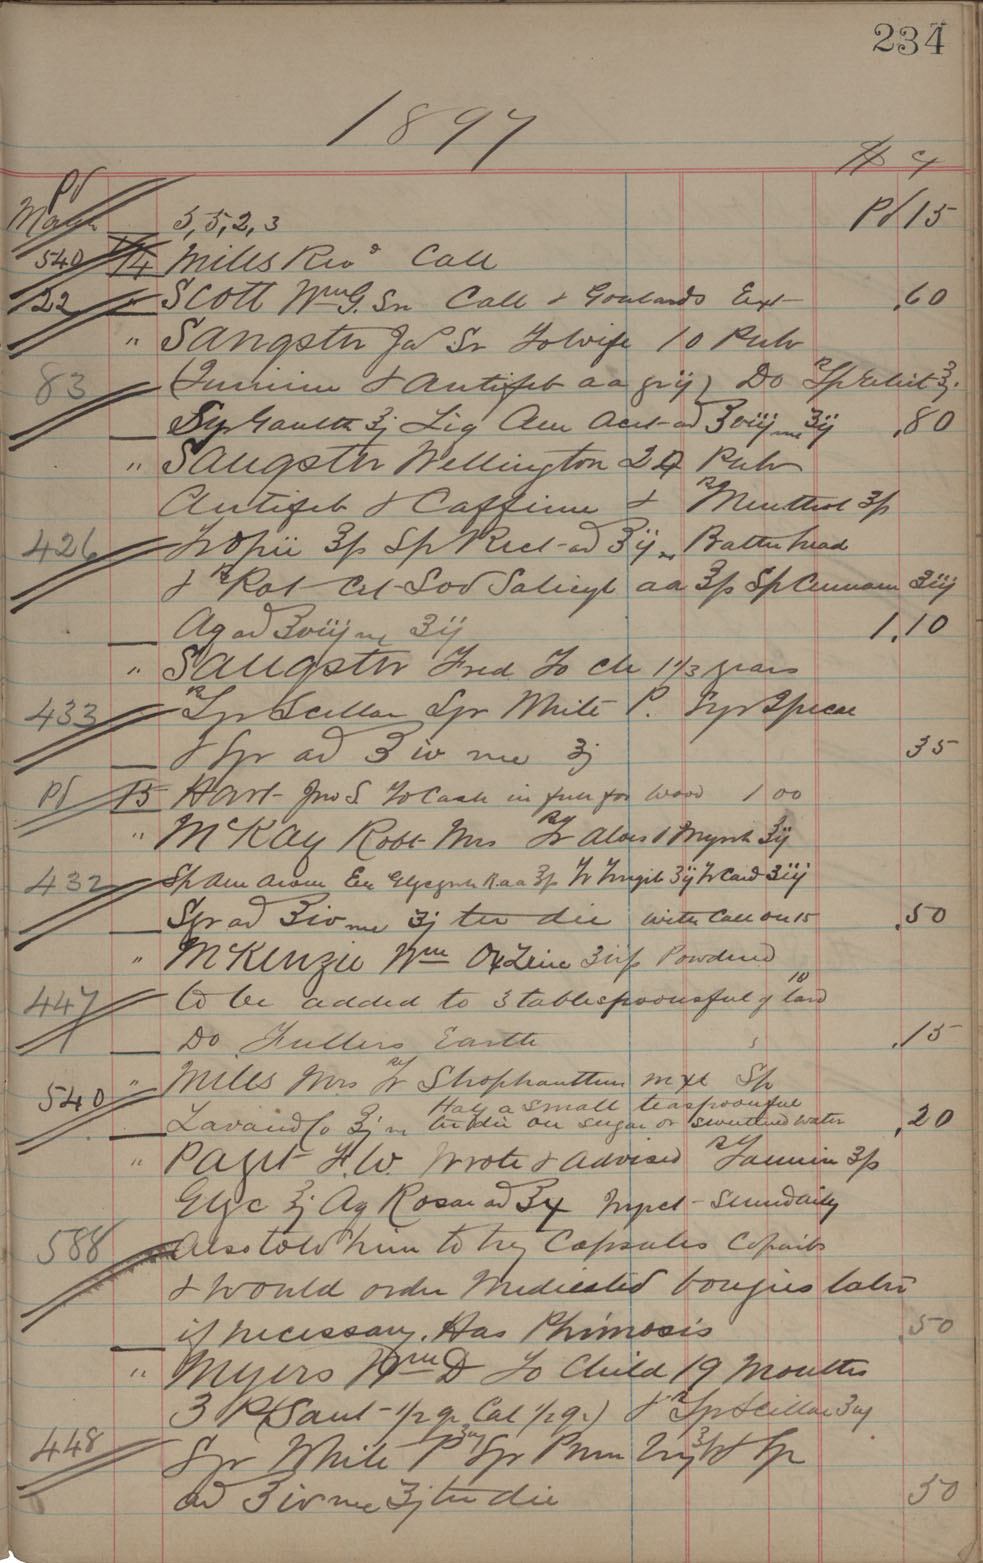 234
1897
$ c
Pd
March 5, 5, 2, 3 Pd 15
540 14 Mills Revd Call
22 " Scott Wm G. Sr Call & Goulards Ext .60
" Sangster Jas Sr To Wife 10 Pulv
83 (Quinine & Antifeb aa gr ij) Do
Syr Gaulth ʒj Liq Am Acet ad ℥viij ʒij .80
" Sangster Wellington 24 Pulv
Antifeb & Caffeine & ℞ Menthol
426 Tr Opii Sp Rect ad ℥ij Bathe head
& ℞ Sod Salicyl aa Sp Cinnam ʒiij
Aq ad ℥viij ʒij 1.10
" Sangster Fred To ch 1 1/3 years
433 ℞ Syr Scillae Syr White P. Syr Ipecac
& Syr ad ℥iv ʒj 35
Pd 15 Hart Jno S To Cash in full for Wood 1 00
" McKay Robt Mrs ℞ Tr Aloes & Myrrh ʒij
432 Sp Am Arom Tr Zingib ʒij Tr Card ʒiij
Syr ad ℥iv ʒj ter die with Call on 15 .50
" McKenzie Wm Ox Zinc Powdered
447 to be added to 3 tablespoonsful of lard
Do Fullers Earth .15
" Mills Mrs ℞ Tr Strophanthus Sp
540 Half a small teaspoonful
Lavand Co ʒj ter die on sugar or sweetened water .20
" Paget F. W. Wrote & advised ℞ Tannin
Glyc ʒj Aq Rosae ad Inject daily
588 Also told him to try Capsules Copaiba
& would order Medicated bougies later
if necessary. Has Phimosis .50
" Myers Wm D To Child 19 Months
3 P (Sant 1/2 gr Cal 1/2 gr) & ℞ Syr Scillae
448 Syr White P Syr Prun Virg & Syr
ad ℥iv ʒj ter die 50